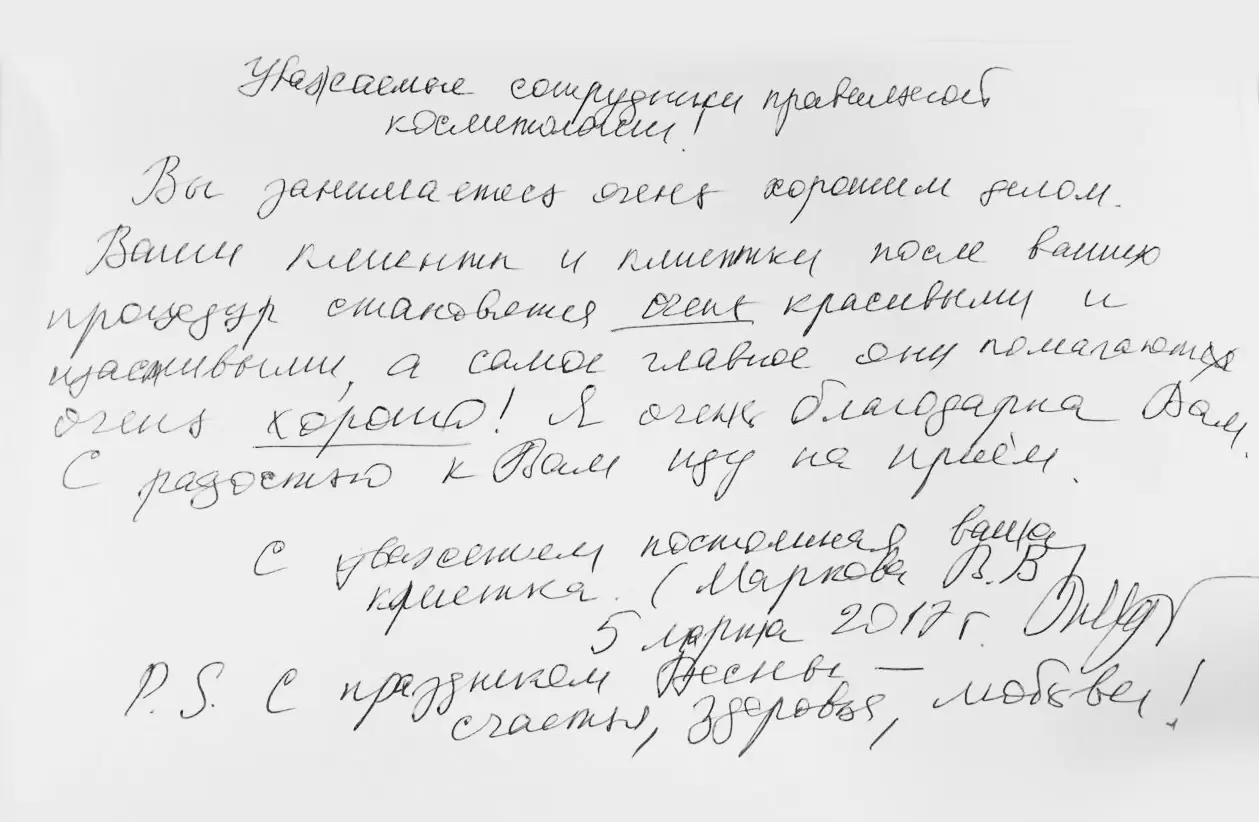 Уважаемые сотрудники правильной
косметологии!
Вы занимаетесь очень хорошим делом.
Ваши клиенты и клиентки после ваших
процедур становятся очень красивыми и
щасливыми, а самое главное они помагают
очень хорошо! Я очень благодарна Вам.
С радостью к Вам иду на приём.
С уважением постоянная ваша
клиентка. (Маркова В.В)
5 марта 2017 г.
P.S. С праздником Весны —
счастья, здоровья, любви!